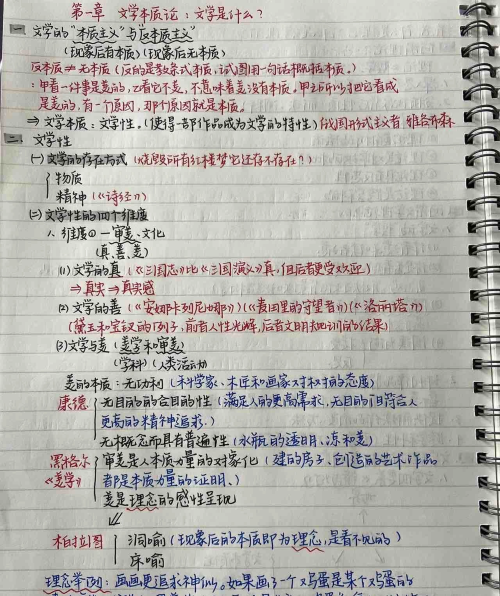 第一章 文学本质论：文学是什么？
一 文学的"本质主义"与"反本质主义"
(现象后有本质)(现象后无本质)
反本质≠无本质 (反的是教条式本质，试图用一句话概括本质。)
：甲看一件事是美的，乙看它不美，不意味着美没有本质。甲之所以把它看成
是美的，有一个原因，那个原因就是本质。
⇒ 文学本质：文学性。(使得一部作品成为文学的特性) 俄国形式主义者 雅各布森
二、文学性
(一) 文学的存在方式 (烧毁所有红楼梦它还存不存在？)
物质
精神 (《诗经》)
(二) 文学性的四个维度
1. 维度① — 审美文化
(真、善、美)
(1) 文学的真 (《三国志》比《三国演义》真，但后者更受欢迎)
⇒ 真实 ⇒ 真实感
(2) 文学的善 (《安娜卡列尼娜》)(《麦田里的守望者》)(《洛丽塔》)
(黛玉和宝钗的例子，前者人性光辉，后者文明知训的结果)
(3) 文学与美 (美学和审美)
(学科) (人类活动)
美的本质：无功利 (科学家、木匠和画家对树的态度)
康德 无目的的合目的性 (满足人的更高需求，无目的但符合人
更高的精神追求。)
无概念而具有普遍性 (水瓶的透明、冻和美)
黑格尔 审美是人本质力量的对象化 (建的房子、创造的艺术作品
《美学》 都是本质力量的证明。)
美是理念的感性呈现
柏拉图 洞喻 (现象后的本质即为理念，是看不见的)
床喻
理念举例：画画更追求神似。如果画了一个鸡蛋是某个鸡蛋的